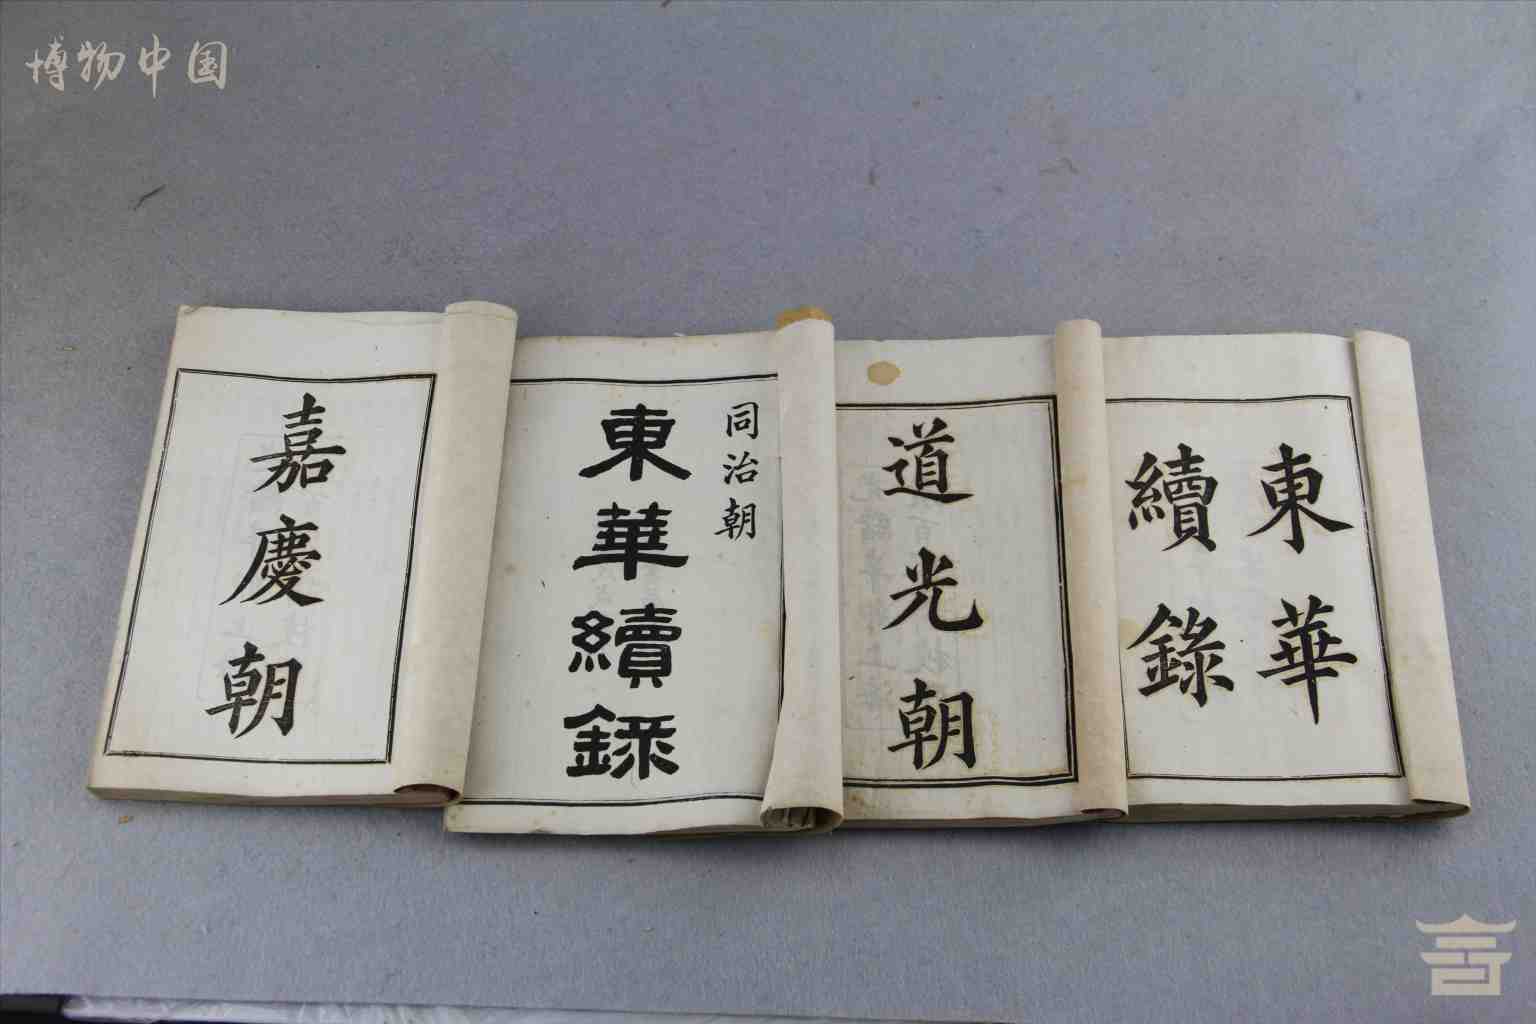 博物中国
嘉慶朝
同治朝
東華續録
道光朝
東華
續錄